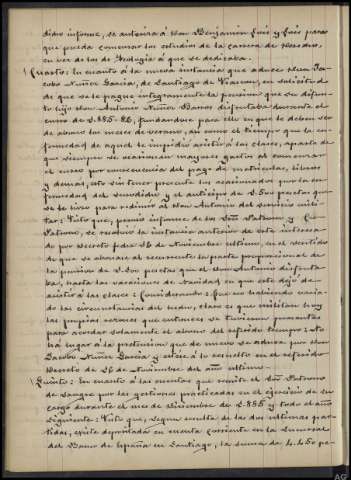 dicho informe, se autoriza á Don Benjamin Luis y Luis para
que pueda comenzar los estudios de la carrera de Derecho,
en vez de los de Teología á que se dedicaba.
Cuarto: En cuanto á la nueva instancia que aduce Don Ja-
cobo Nuñez Garcia, de Santiago de Viascon, en solicitud
de que se le pague integramente la pension que su difun-
to hijo Don Antonio Nuñez Banos disfrutaba durante el
curso de 1.885-86, fundandose para ello en que le deben ser
de abono los meses de verano, asi como el tiempo que la en-
fermedad de aquel le impidió asistir á las clases, aparte de
que siempre se ocasionan mayores gastos al comenzar
el curso por consecuencia del pago de matriculas, libros
y demas, esto sin tener presente los ocasionados por la en-
fermedad del susodicho y el anticipo de 1.500 pesetas que
se le hizo para redimir al Don Antonio del servicio mili-
tar: Visto que, previo informe de los Sres Patrono y Co-
Patrono, se resolvió la instancia anterior de este interesa-
do por Decreto fecha 26 de Noviembre ultimo, en el sentido
de que se abonase al recurrente la parte proporcional de
la pension de 1.500 pesetas que el Don Antonio disfruta-
ba, hasta las vacaciones de Navidad en que este dejó de
asistir á las clases: Considerando: que no habiendo varia-
do las circunstancias del caso, claro es que militan hoy
las propias razones que entonces se tuvieron presentes
para acordar solamente el abono del referido tiempo: No
ha lugar á la pretension que de nuevo se aduce por Don
Jacobo Nuñez Garcia y estése á lo resuelto en el referido
Decreto de 26 de Noviembre del año ultimo.
Quinto: En cuanto á las cuentas que remite el Sor Patrono
de sangre por las gestiones practicadas en el ejercicio de su
cargo durante el mes de Diciembre de 1.885 y todo el año
siguiente: Visto que, segun resulta de las dos ultimas par-
tidas, existe depositada en cuenta corriente en la Sucursal
del Banco de España en Santiago, la suma de 4.450 pe-